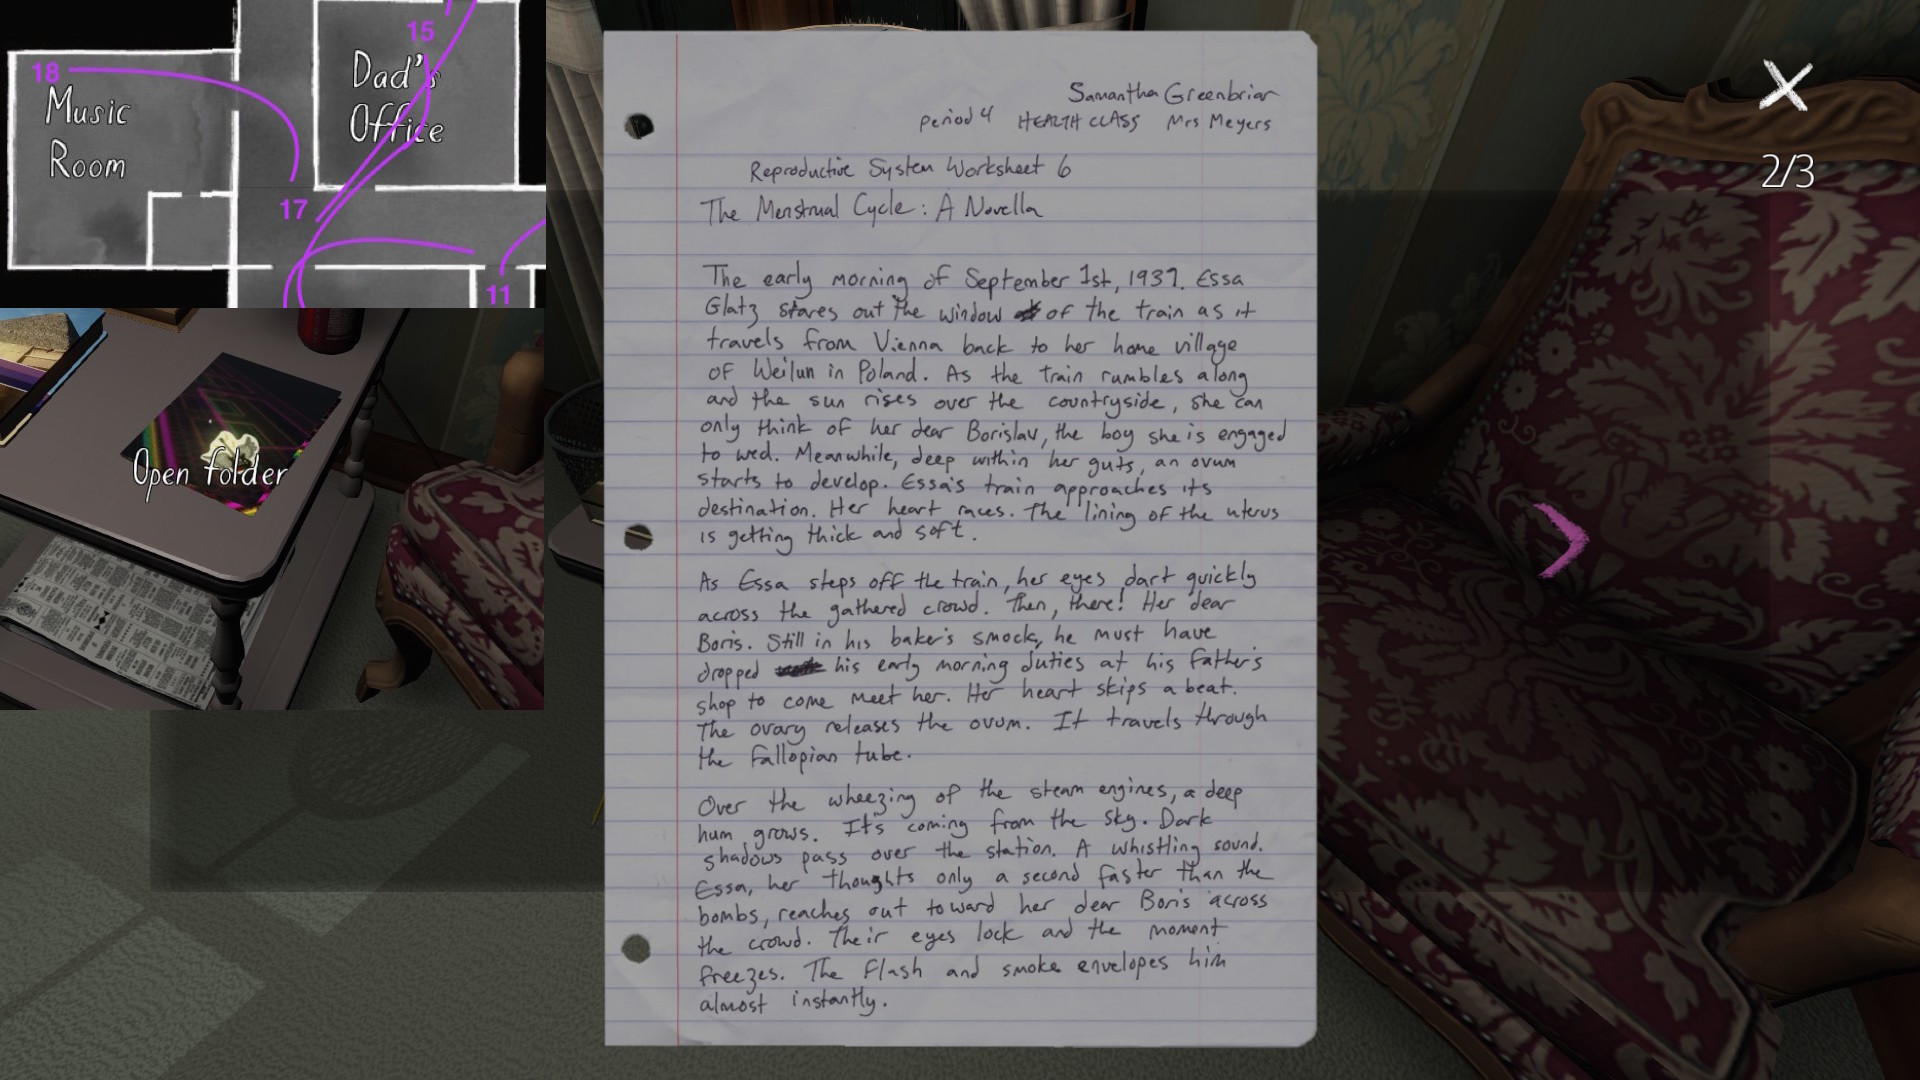 15
18
Dad's
Office
Music
Room
17
11
Open folder
2/3
Samantha Greenbriar
period 4 HEALTH CLASS Mrs Meyers
Reproductive System Worksheet 6
The Menstrual Cycle: A Novella
The early morning of September 1st, 1939. Essa
Glatz stares out the window of the train as it
travels from Vienna back to her home village
of Weilun in Poland. As the train rumbles along
and the sun rises over the countryside, she can
only think of her dear Borislav, the boy she is engaged
to wed. Meanwhile, deep within her guts, an ovum
starts to develop. Essa's train approaches its
destination. Her heart races. The lining of the uterus
is getting thick and soft.
As Essa steps off the train, her eyes dart quickly
across the gathered crowd. Then, there! Her dear
Boris. Still in his baker's smock, he must have
dropped his early morning duties at his father's
shop to come meet her. Her heart skips a beat.
The ovary releases the ovum. It travels through
the fallopian tube.
Over the wheezing of the steam engines, a deep
hum grows. It's coming from the sky. Dark
shadows pass over the station. A whistling sound.
Essa, her thoughts only a second faster than the
bombs, reaches out toward her dear Boris across
the crowd. Their eyes lock and the moment
freezes. The flash and smoke envelopes him
almost instantly.